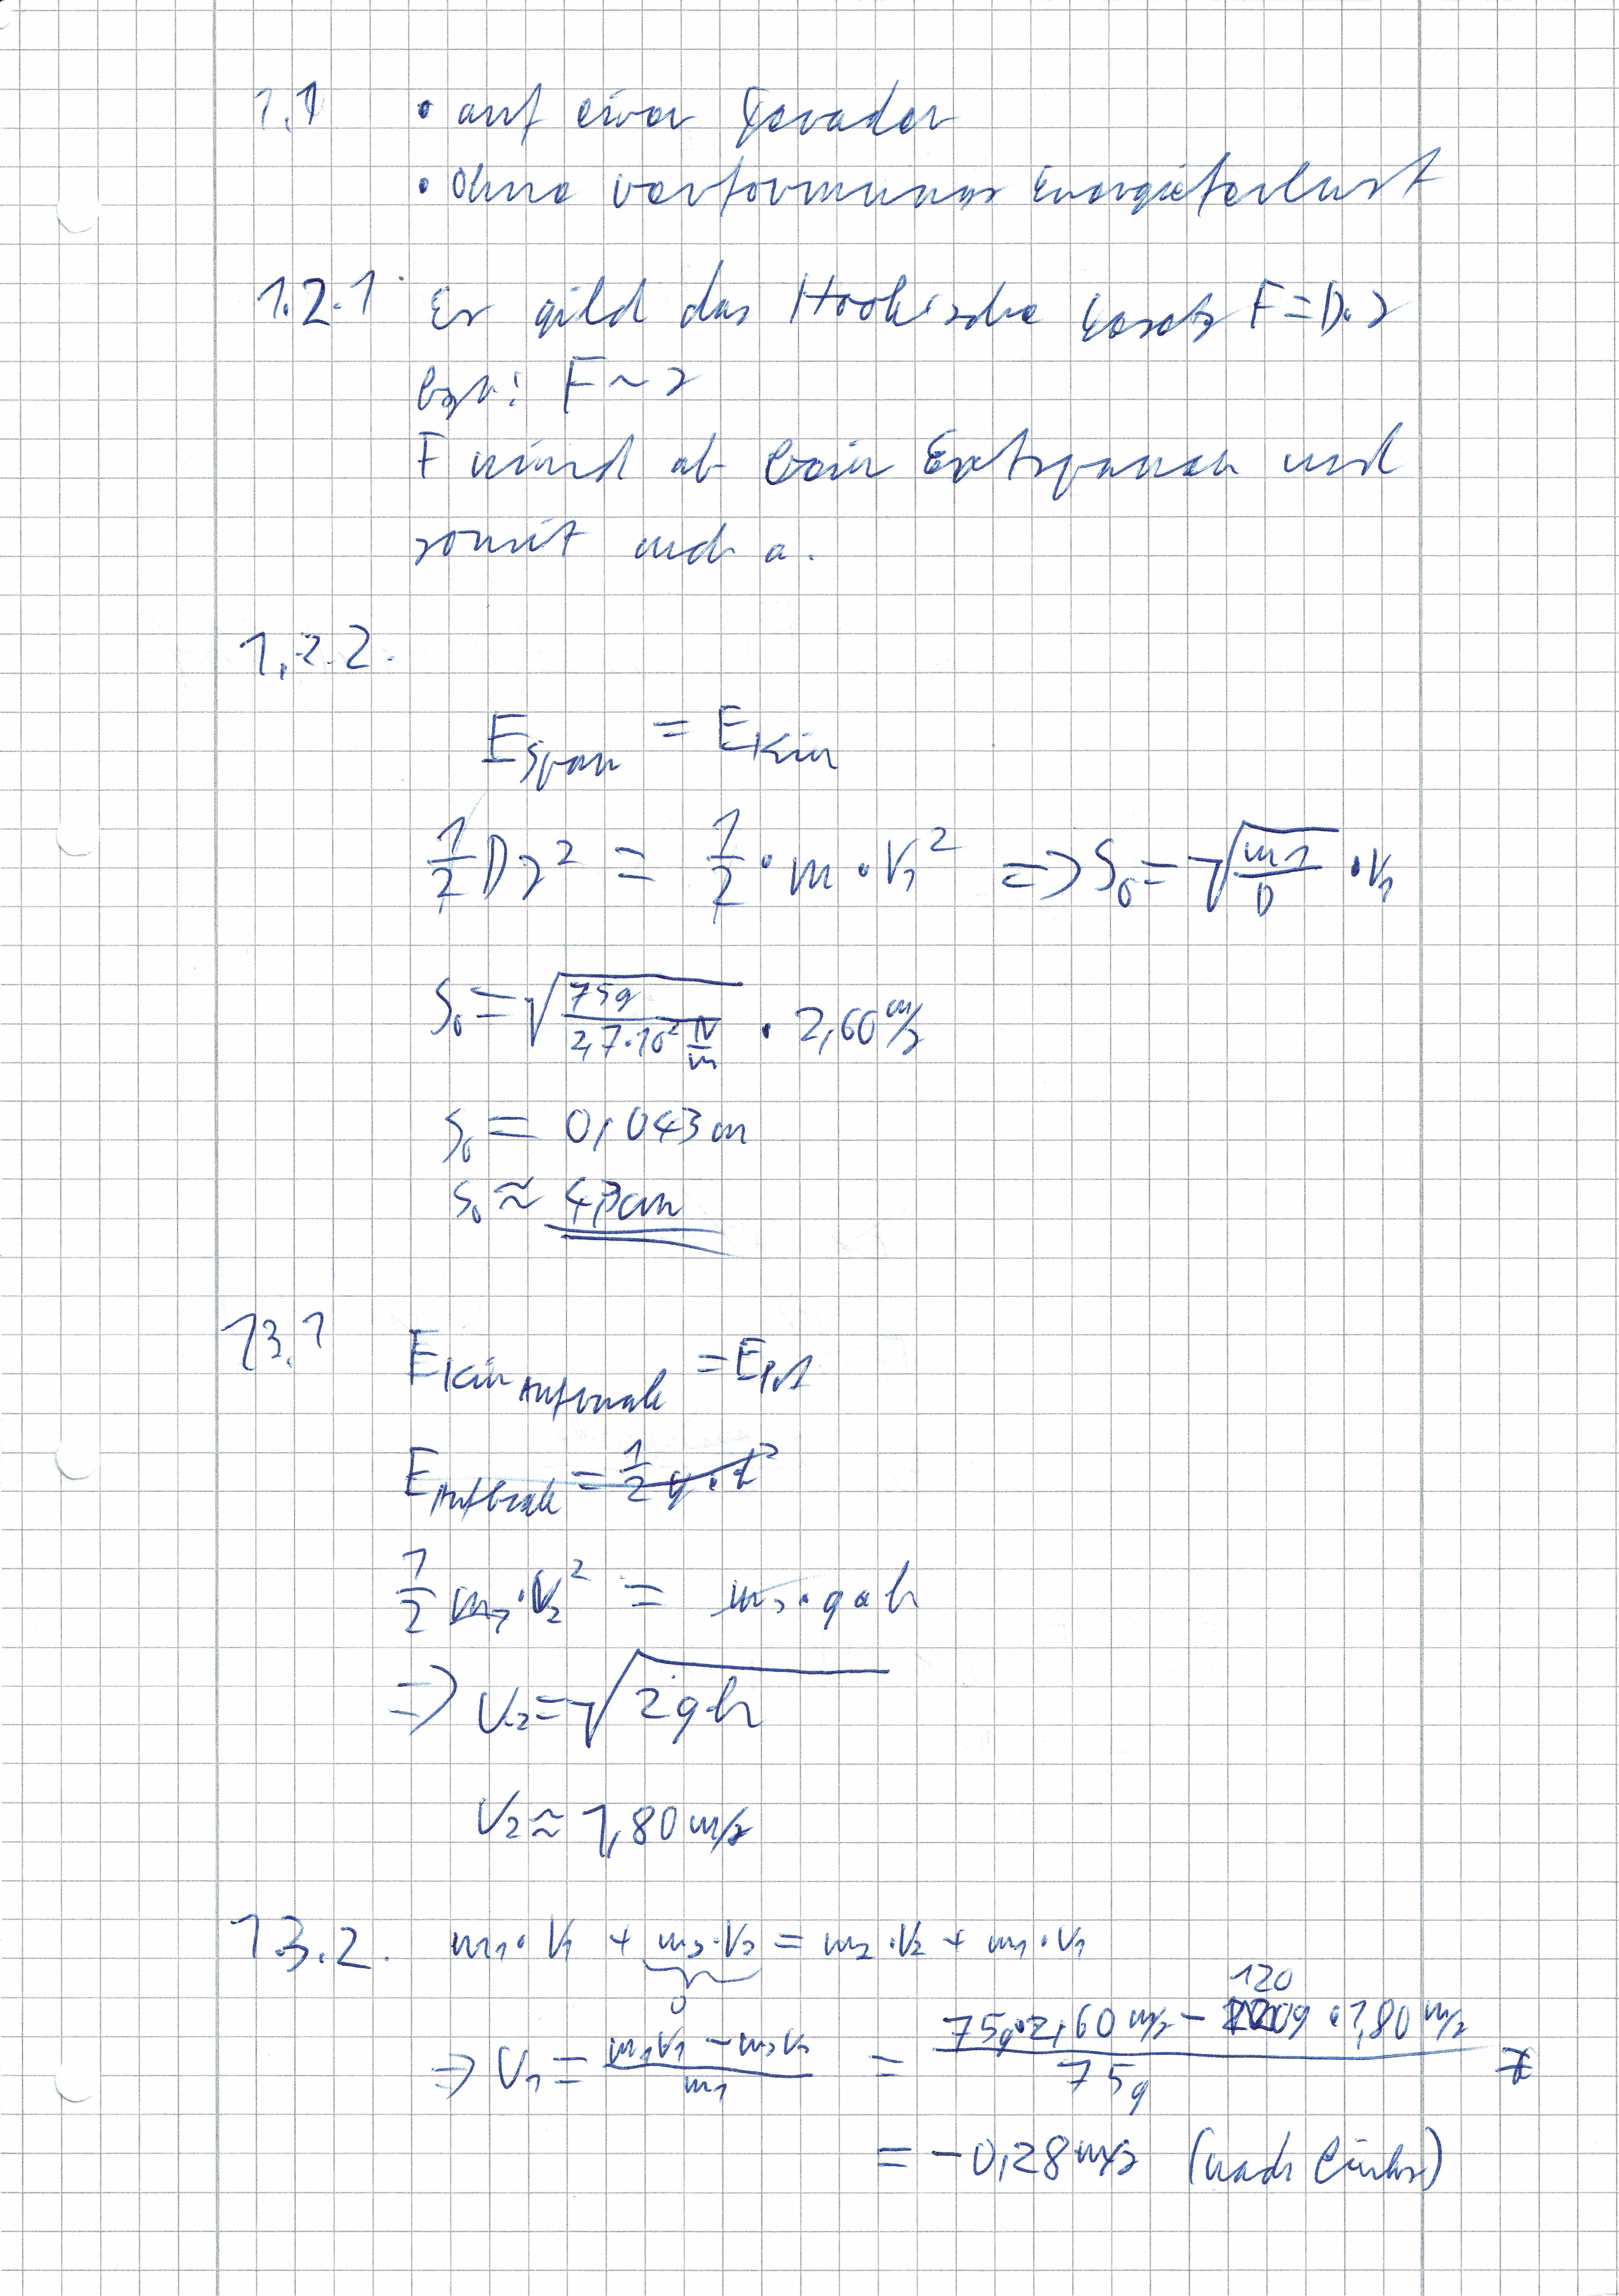 1.1 • auf einer Geraden
• Ohne verformungs Energieferlust
1.2.1 Es gild das Hook'sche Gesetz F=D.s
bzw: F~s
F nimd ab beim Entspannen und
somit auch a.
1.2.2.
E_Span = E_Kin
1/2 D s² = 1/2 • m • V₁² => S₀ = √(m1/D) • V₁
S₀ = √(75g / 2,7·10² N/m) • 2,60 m/s
S₀ = 0,043m
S₀ ≈ 4,3cm
1.3.1 E_Kin Anfang = E_Pot
1/2 m₂ · V₂² = m₂ · g · h
=> V₂ = √(2gh)
V₂ ≈ 1,80 m/s
1.3.2. m₁ · V₁ + m₂ · V₂ = m₂ · V₂ + m₁ · V₁
0
=> V₁ = (m₁V₁ - m₂V₂) / m₁ = (75g · 2,60 m/s - 120g · 1,80 m/s) / 75g
= -0,28 m/s (nach links)